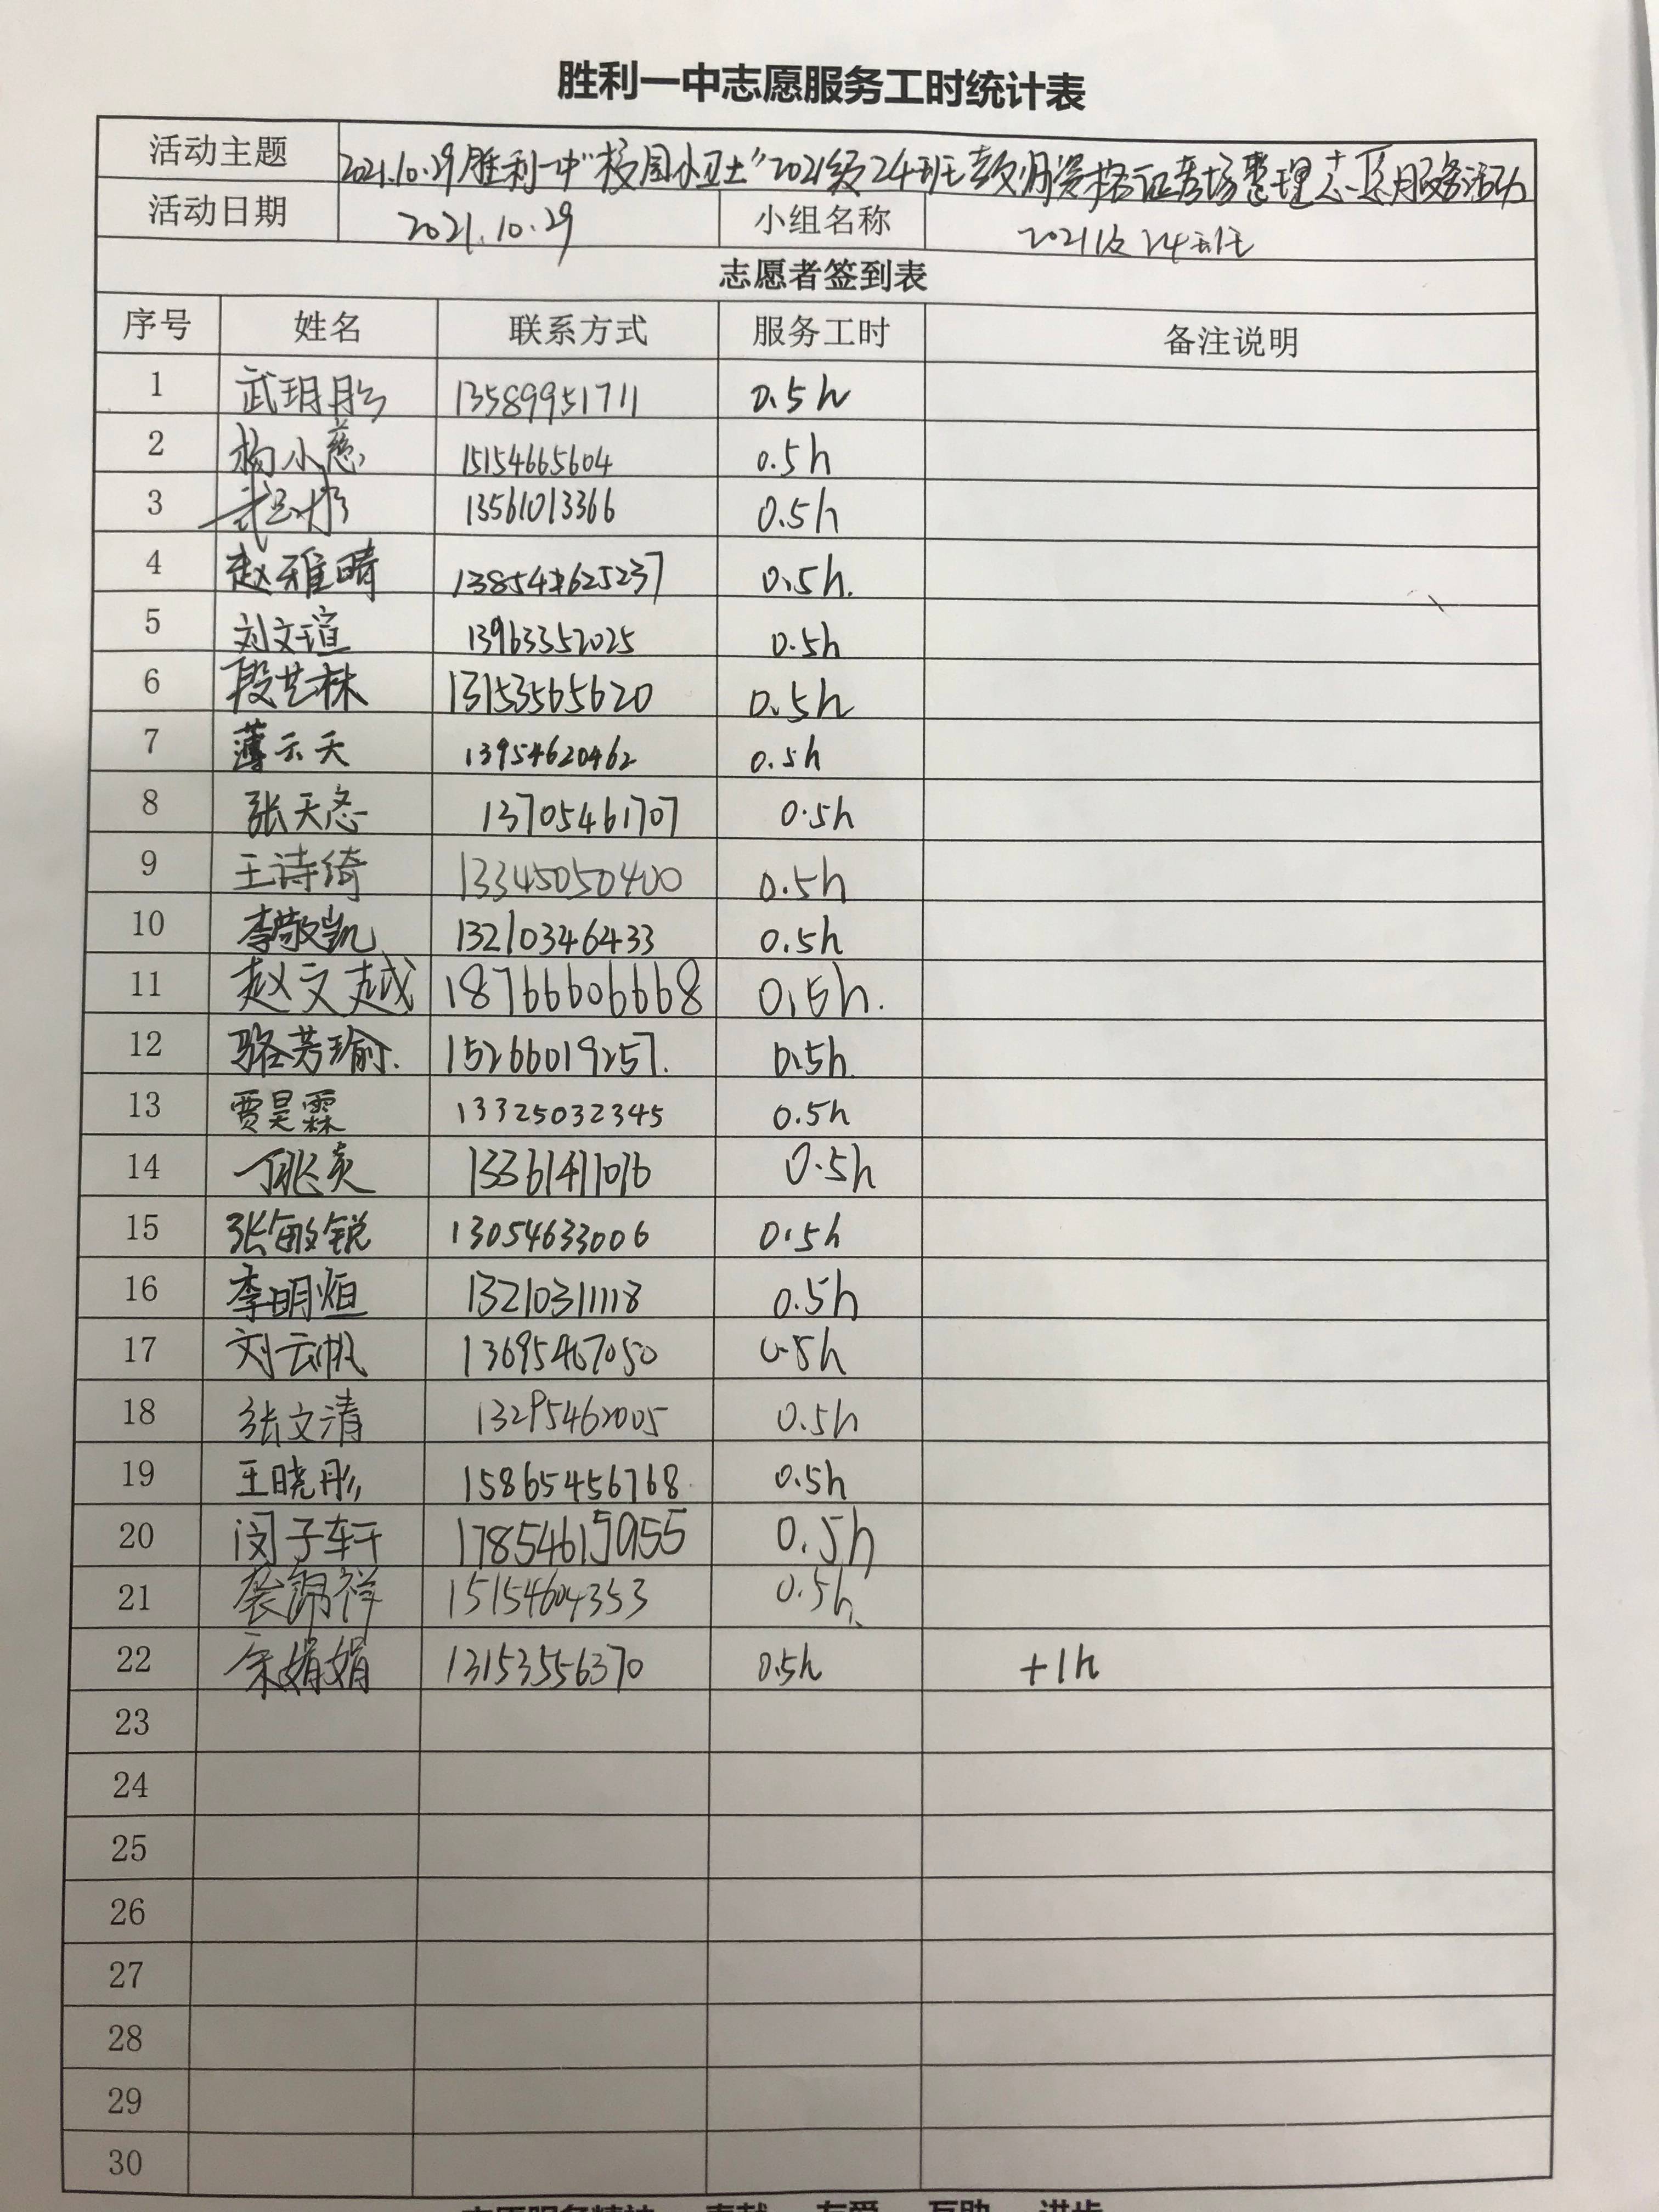 胜利一中志愿服务工时统计表
活动主题 2021.10.29胜利一中"校园小卫士"2021级24班教师资格证考场整理志愿服务活动
活动日期 2021.10.29 小组名称 2021级24班
志愿者签到表
序号 姓名 联系方式 服务工时 备注说明
1 武玥彤 13589951711 0.5h
2 杨小慈 15154665604 0.5h
3 13561013366 0.5h
4 赵雅晴 13854625237 0.5h.
5 刘文瑄 13963352025 0.5h
6 段艺林 13153565620 0.5h
7 薄云天 13954620462 0.5h
8 张天 13705461707 0.5h
9 王诗绮 13345050400 0.5h
10 李敬凯 13210346433 0.5h
11 赵文越 18766606668 0.5h.
12 骆芳瑜. 15266019257. 0.5h.
13 贾昊霖 13325032345 0.5h
14 丁兆 13361411016 0.5h
15 张敏锐 13054633006 0.5h
16 李明烜 13210311118 0.5h
17 刘云帆 13695467050 0.5h
18 张文清 13295462005 0.5h
19 王晓彤 15865456768. 0.5h
20 闵子轩 17854615955 0.5h
21 袭锦祥 15154604353 0.5h.
22 宋娟娟 13153556370 0.5h +1h
23
24
25
26
27
28
29
30
志愿服务精神 奉献 友爱 互助 进步